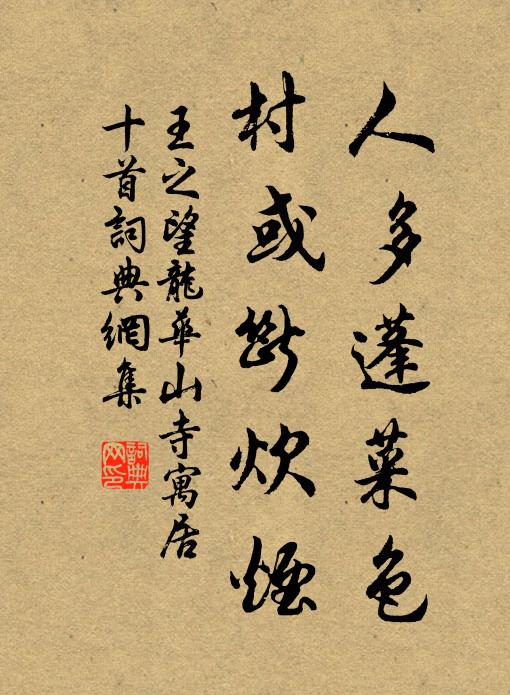 人多蓬菜色
村或斷炊煙
王之望龍華山寺寓居
十首詞典網集
詞典
网印